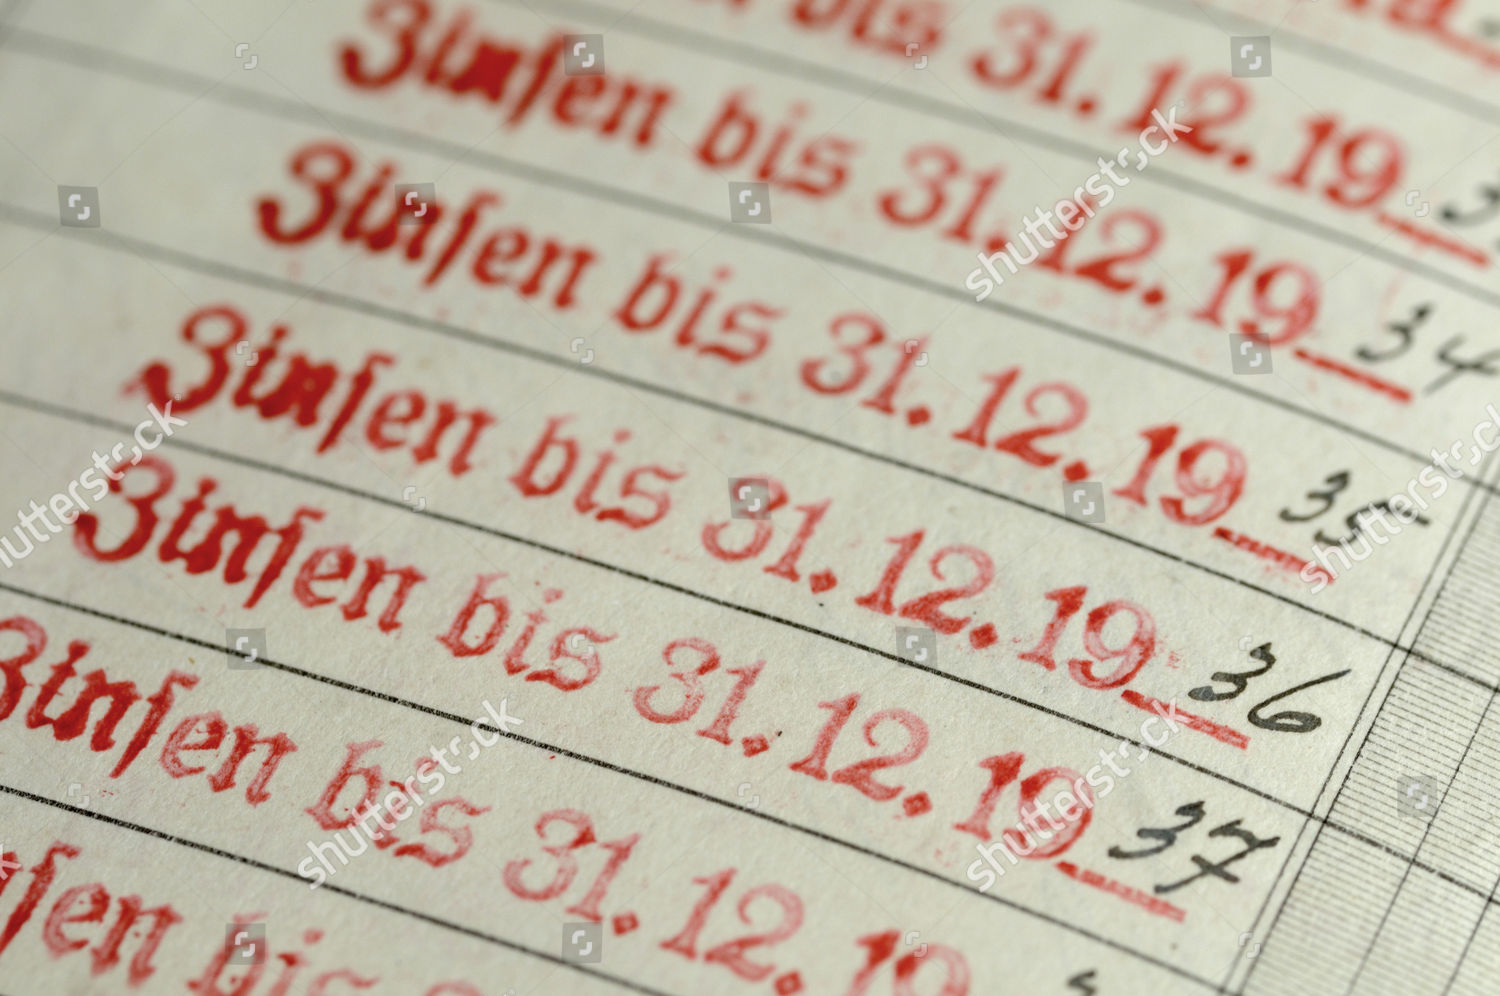 bis 31. 12. 19
Zinsen bis 31. 12. 19 34
Zinsen bis 31. 12. 19 35
Zinsen bis 31. 12. 19 36
Zinsen bis 31. 12. 19 37
Zinsen bis 31. 12. 19
bis
shutterstock
shutterstock
shutterstock
shutterstock
shutterstock